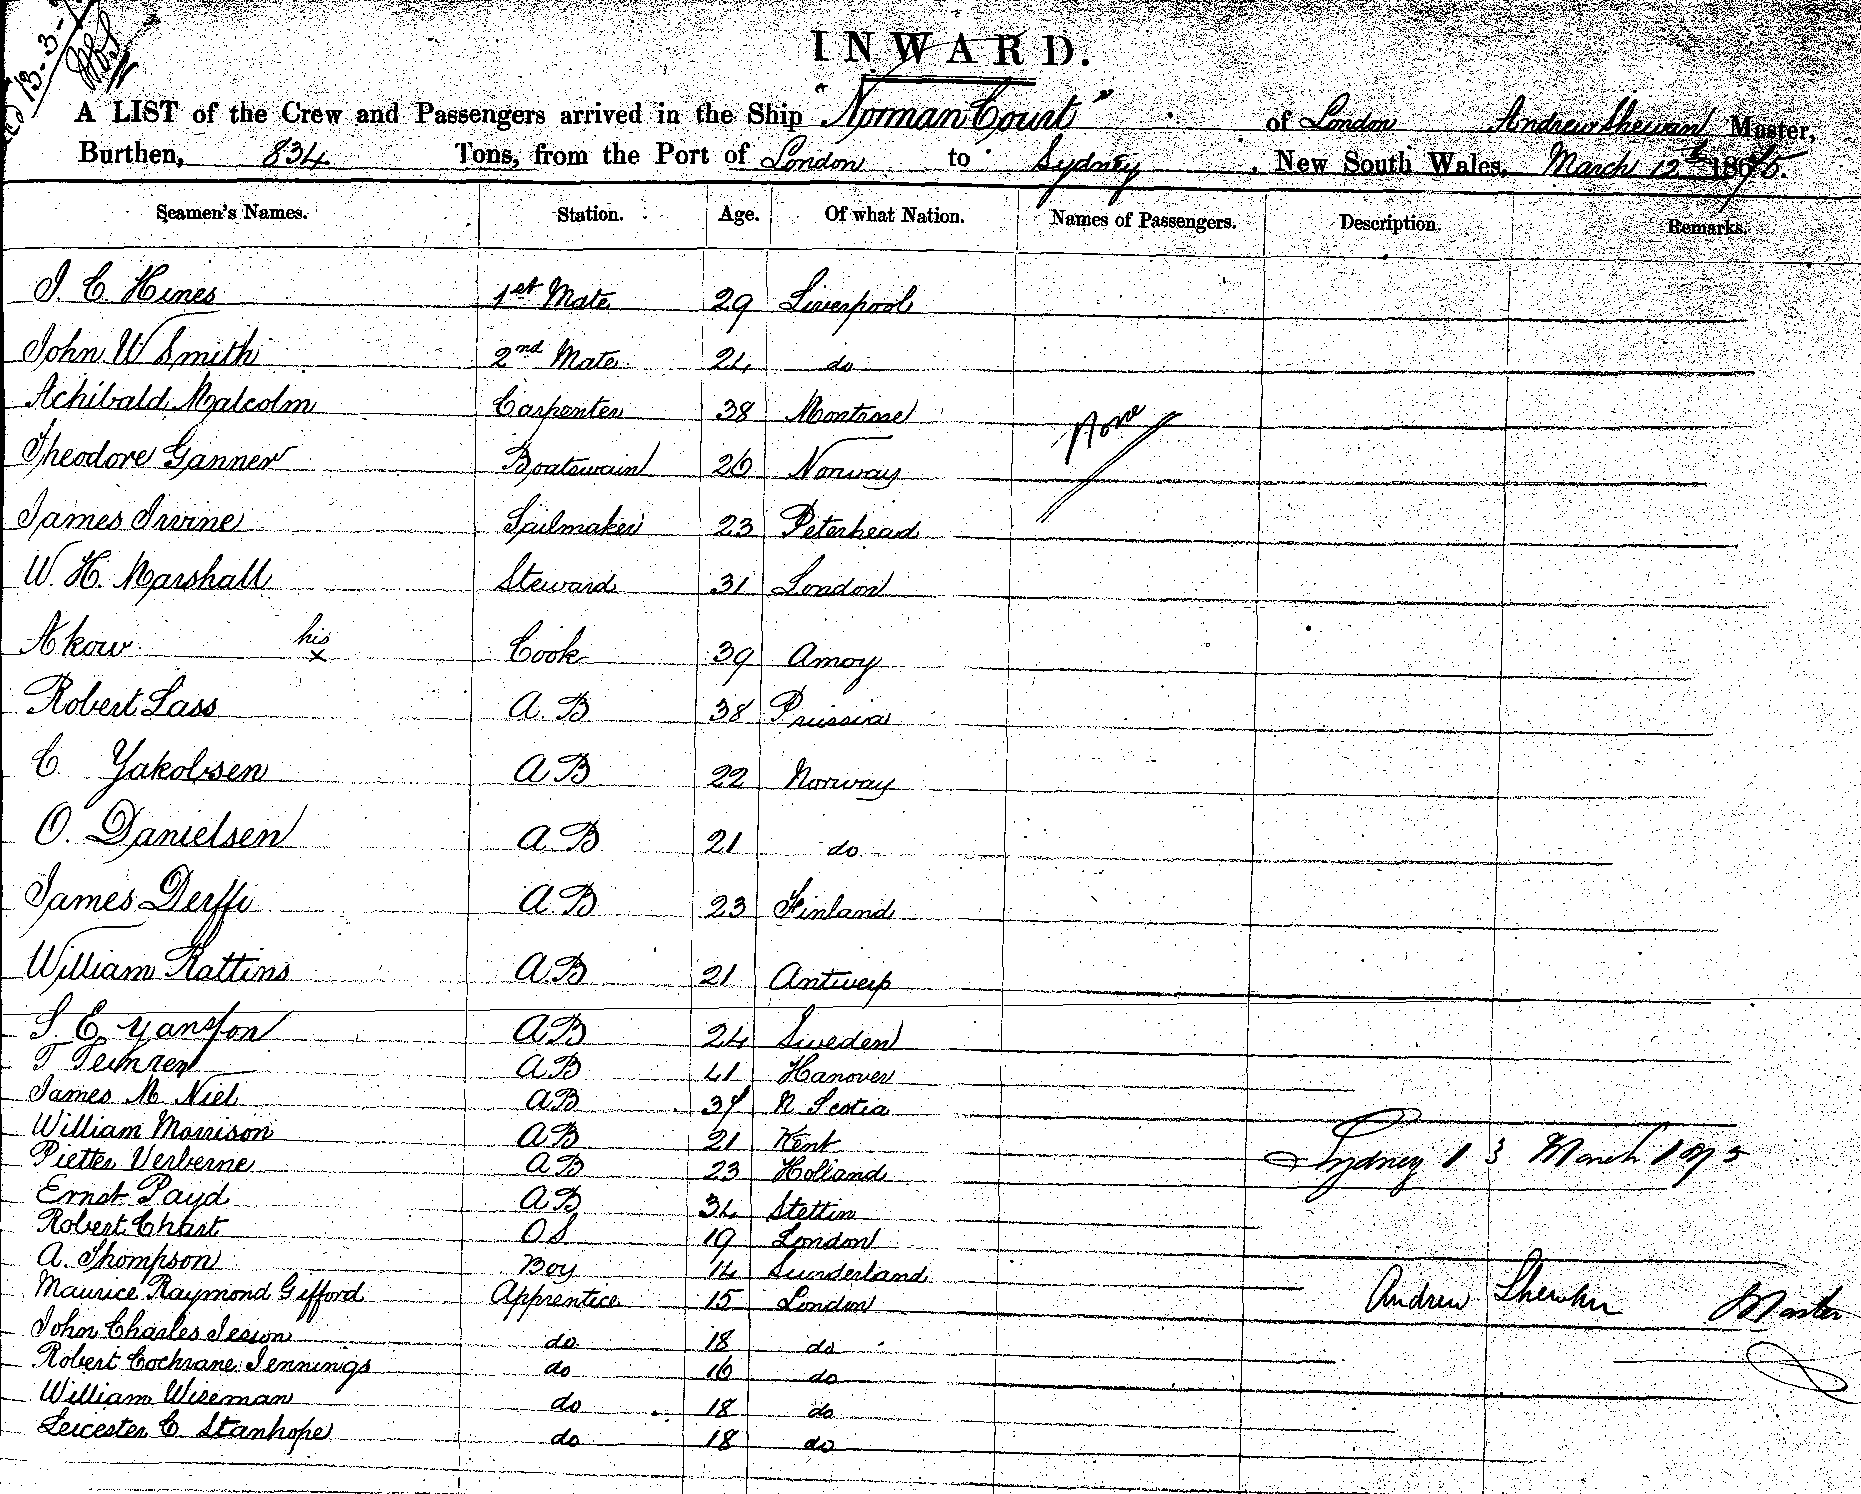 13-3-
INWARD.
A LIST of the Crew and Passengers arrived in the Ship "Norman Court" of London Andrew Shewan Master,
Burthen, 834 Tons, from the Port of London to Sydney, New South Wales, March 12th 1875.
Seamen's Names. Station. Age. Of what Nation. Names of Passengers. Description. Remarks.
J. C. Hines 1st Mate 29 Liverpool
John W Smith 2nd Mate 24 do
Achibald Malcolm Carpenter 38 Montrose
None
Theodore Ganner Boatswain 26 Norway
James Irvine Sailmaker 23 Peterhead
W. H. Marshall Steward 31 London
Akow his x Cook 39 Amoy
Robert Lass A.B 38 Prussia
C. Yakobsen A.B 22 Norway
O. Danielsen A.B 21 do
James Derffi A.B 23 Finland
William Rattins A.B 21 Antwerp
S. E. Yansson A.B 24 Sweden
T A.B 41 Hanover
James Mc Niel A.B 37 N Scotia
William Morrison A.B 21 Kent
Pietter Verberne A.B 23 Holland
Sydney 13 March 1875
Ernst Payd A.B 34 Stettin
Robert Chart O S 19 London
A. Thompson Boy 14 Sunderland
Maurice Raymond Gifford Apprentice 15 London
Andrew Shewan Master
John Charles do 18 do
Robert Cochrane Jennings do 16 do
William Wiseman do 18 do
Leicester C Stanhope do 18 do